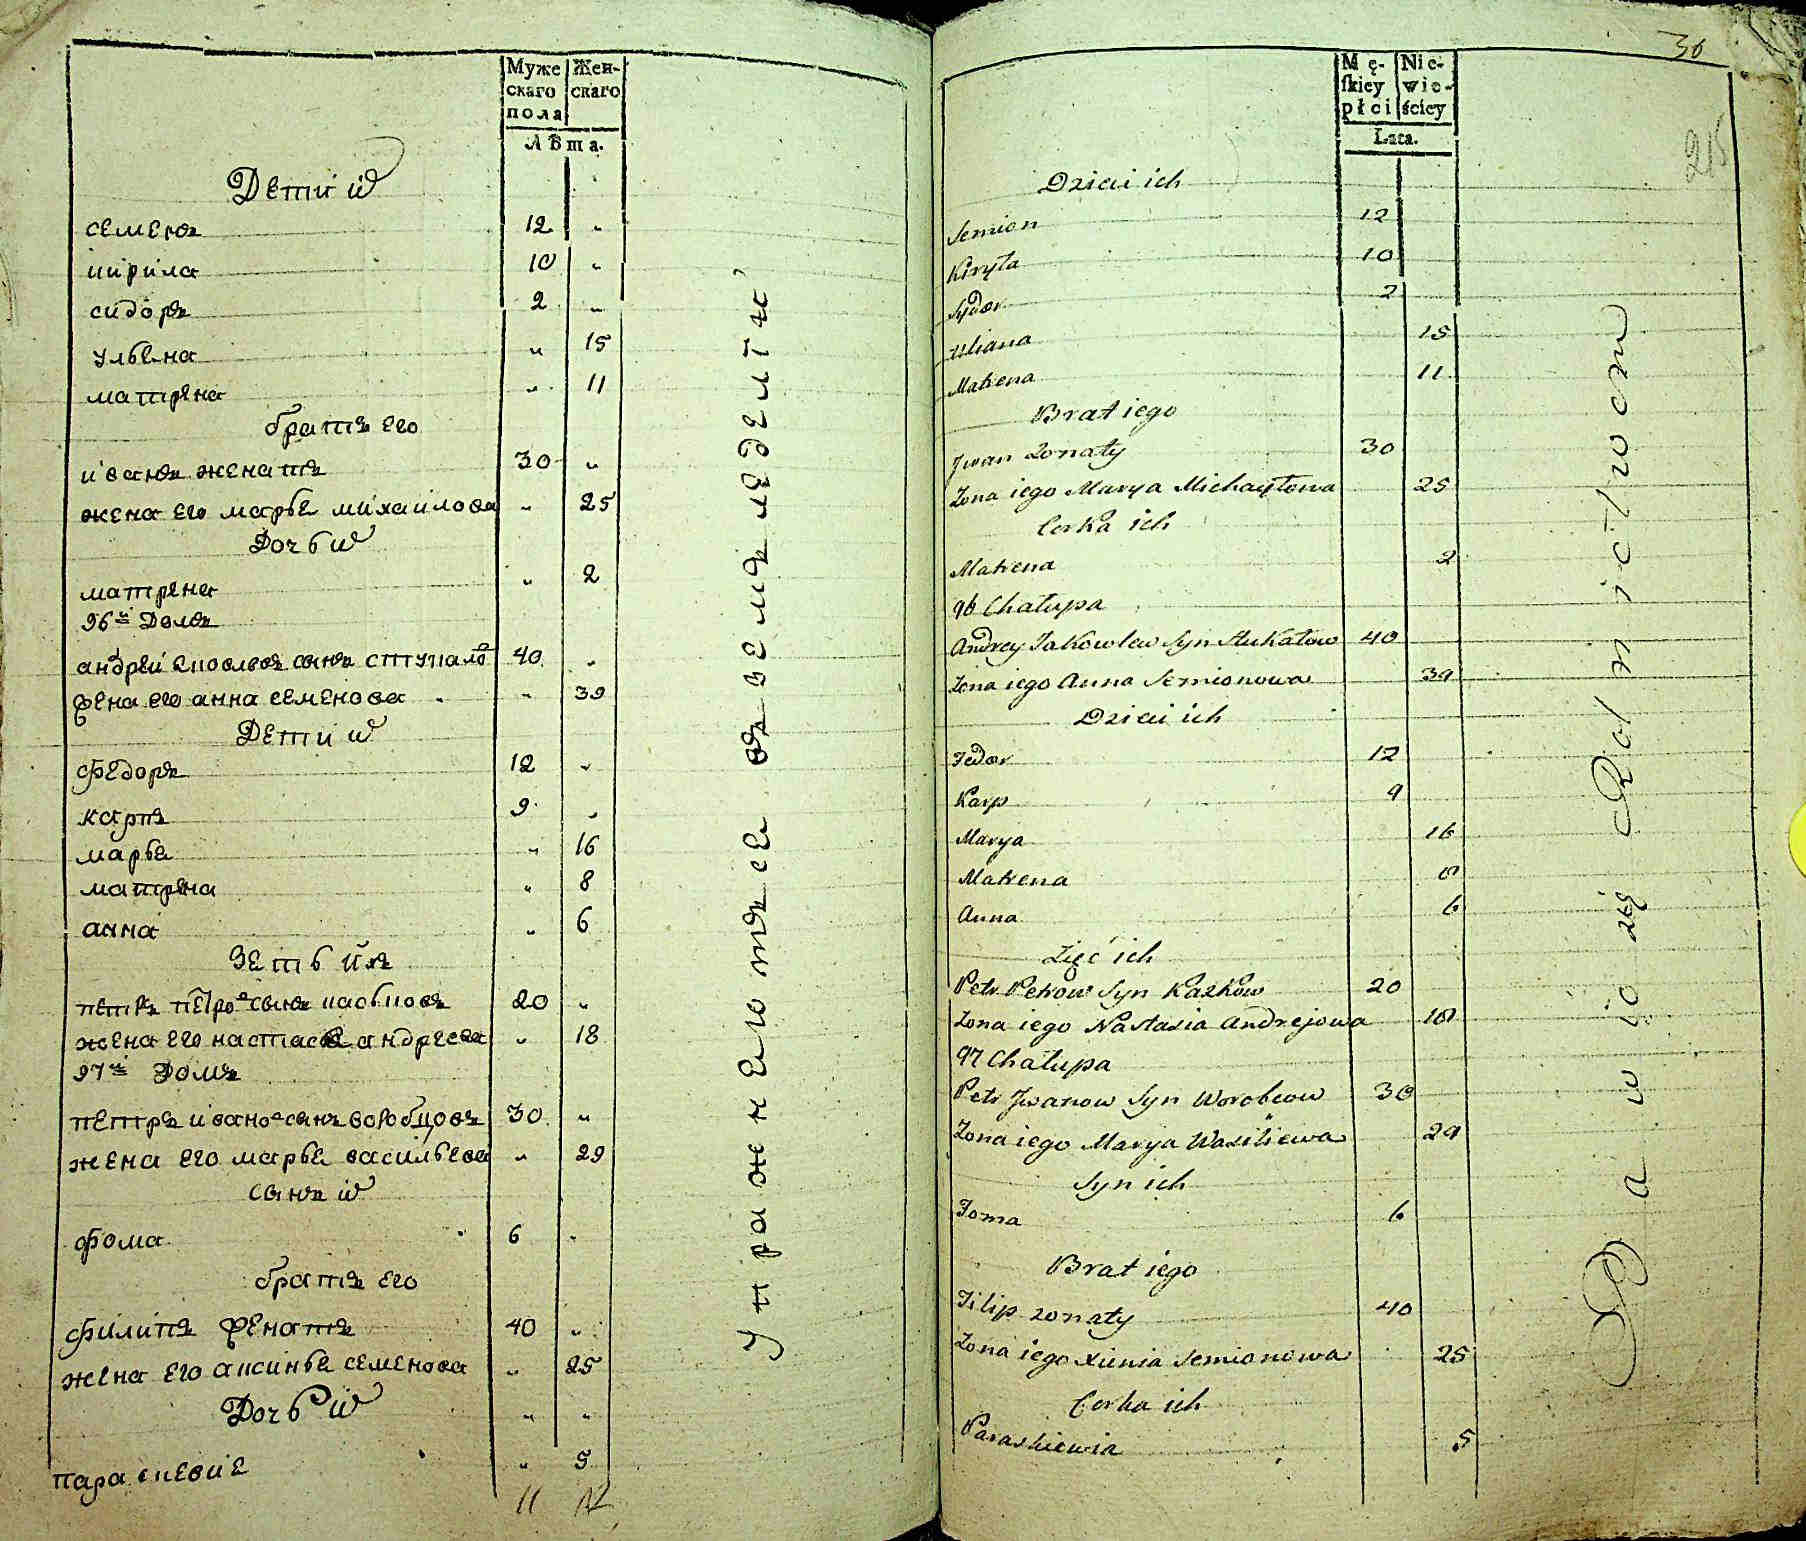 Муже Жен-
скаго скаго
пола
Лѣта.
Дети иⷯ
семенъ 12 „
кирила 10 „
сидоръ 2 „
ульѣна „ 15
матрена „ 11
братъ его
иванъ женатъ 30 „
жена его марьѣ михаилова „ 25
Дочь иⷯ
матрена „ 2
96й Домъ
андрей яковлевъ сынъ стукалоⷡ 40 „
жена его анна семенова „ 39
Дети иⷯ
федоръ 12 „
карпъ 9 „
марьѣ „ 16
матрена „ 8
анна „ 6
Зеть ихъ
петръ петроⷡ сынъ 20 „
жена его настасьѣ андреева „ 18
97й Домъ
петръ иваноⷡ сынъ воробцовъ 30 „
жена его марьѣ васильева „ 29
сынъ иⷯ
фома 6 „
братъ его
филипъ женатъ 40 „
жена его аксиньѣ семенова „ 25
Дочь иⷯ „ „
параскевиѣ „ 5
11 12
Упражнеютъсе въ земледелии,
36
Mę- Nie-
ſkiey wie-
płci ściey
Lata.
215
Dzieci ich
Semion 12
Kiryła 10
Sydor 2
Uliana 15
Matrena 11
Brat iego
Jwan żonaty 30
Żona iego Marya Michayłowa 25
Corka ich
Matrena 2
96 Chałupa
Andrey Jakowlew Syn Stukałow 40
Żona iego Anna Semionowa 39
Dzieci ich
Fedor 12
Karp 9
Marya 16
Matrena 8
Anna 6
Zięć ich
Petr Petrow Syn Kazkow 20
Żona iego Nastazia Andrejowa 18
97 Chałupa
Petr Jwanow Syn Worobcow 30
Żona iego Marya Wasiliewa 29
Syn ich
Foma 6
Brat iego
Filip żonaty 40
Żona iego Xienia Semionowa 25
Corka ich
Paraskiewia 5
Bawią się Rolnictwem